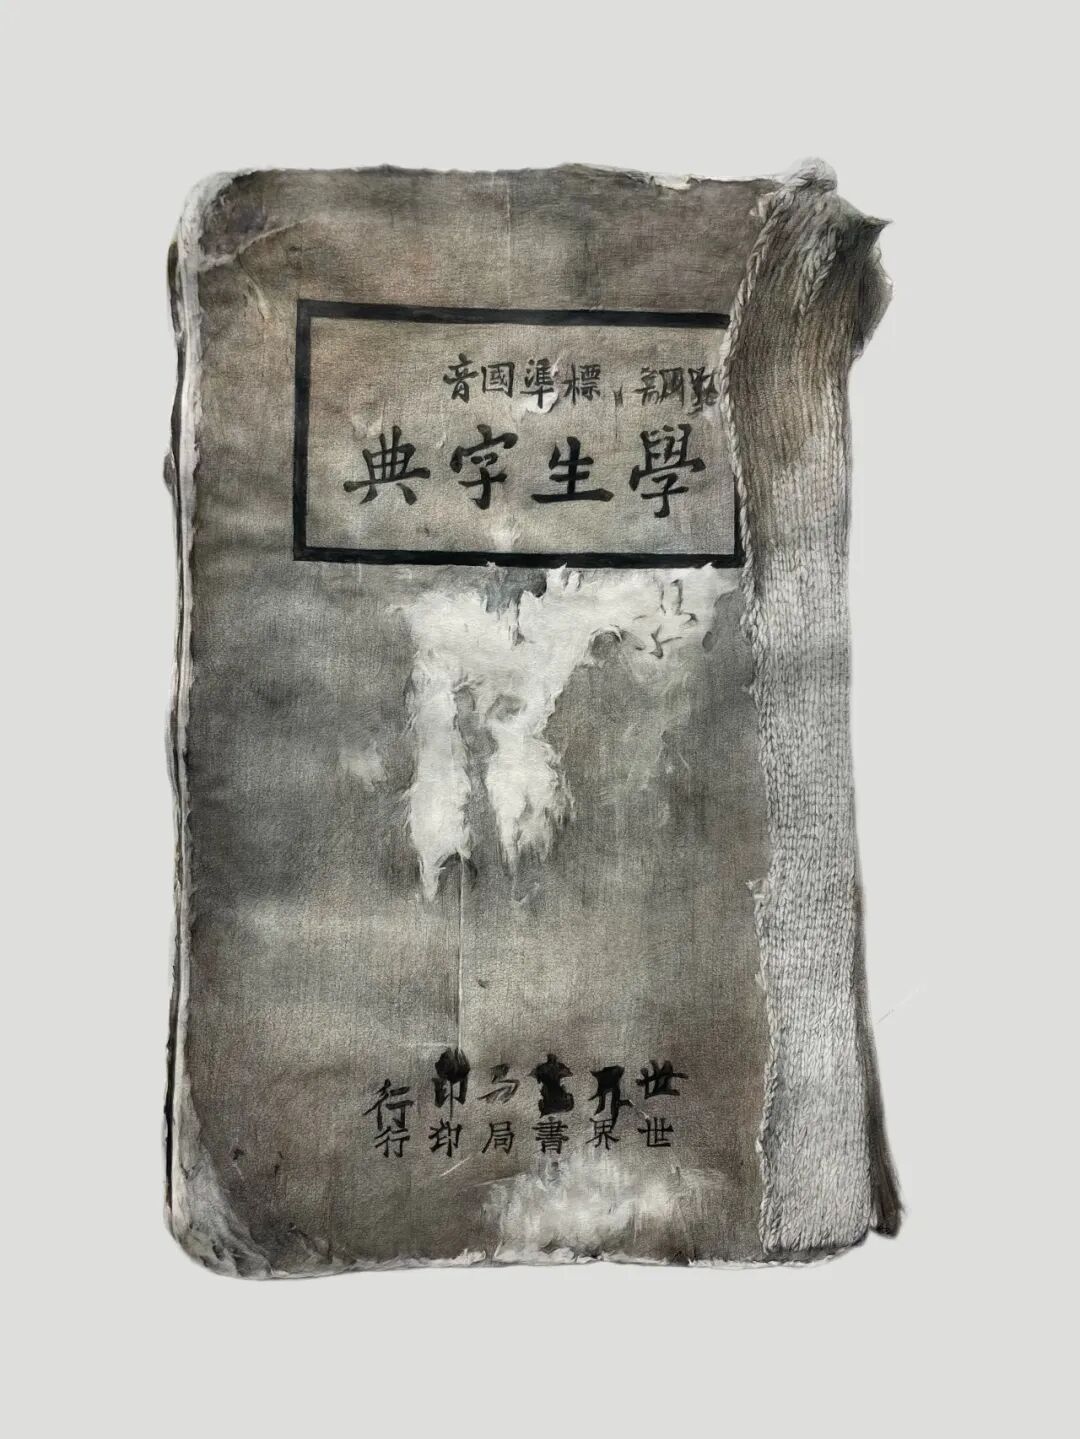 標準國音
學生字典
世印行
世界書局印行